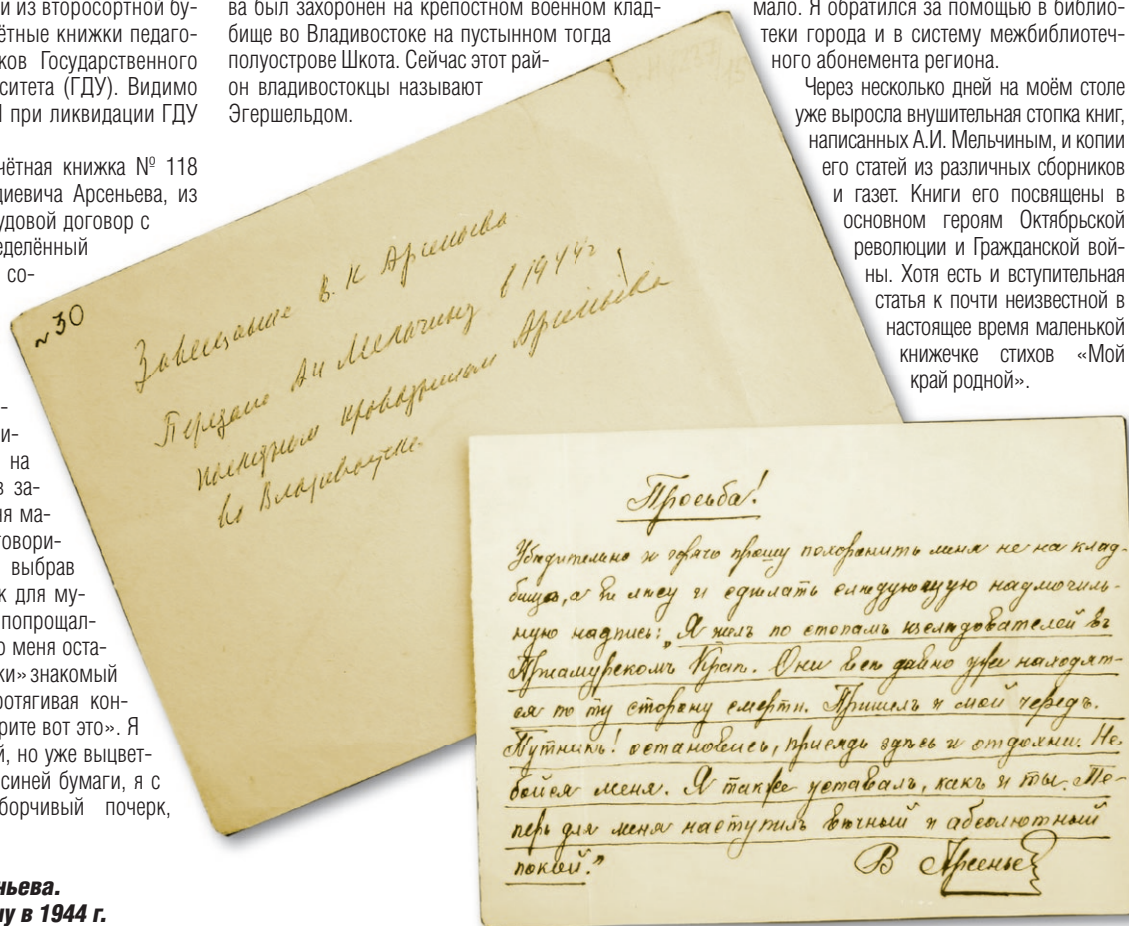 и из второсортной бу-
ётные книжки педаго-
ков Государственного
ситета (ГДУ). Видимо
при ликвидации ГДУ
чётная книжка № 118
диевича Арсеньева, из
удовой договор с
еделённый
со-
и-
на
в за-
ия ма-
овори-
выбрав
к для му-
попрощал-
о меня оста-
ки» знакомый
ротягивая кон-
рите вот это». Я
й, но уже выцвет-
синей бумаги, я с
борчивый почерк,
ньева.
ну в 1944 г.
ва был захоронен на крепостном военном клад-
бище во Владивостоке на пустынном тогда
полуострове Шкота. Сейчас этот рай-
он владивостокцы называют
Эгершельдом.
мало. Я обратился за помощью в библио-
теки города и в систему межбиблиотеч-
ного абонемента региона.
Через несколько дней на моём столе
уже выросла внушительная стопка книг,
написанных А.И. Мельчиным, и копии
его статей из различных сборников
и газет. Книги его посвящены в
основном героям Октябрьской
революции и Гражданской вой-
ны. Хотя есть и вступительная
статья к почти неизвестной в
настоящее время маленькой
книжечке стихов «Мой
край родной».
№30
Завещание В. К Арсеньева
Передано АИ Мельчину в 1944г
последним проводником Арсеньева
во Владивостоке
Просьба!
Убедительно и горячо прошу похоронить меня не на клад-
бище, а в лесу и сделать следующую надмогиль-
ную надпись: „Я шелъ по стопамъ изследователей въ
Приамурскомъ Крае. Они все давно уже находят-
ся по ту сторону смерти. Пришелъ и мой чередъ.
Путникъ! остановись, присядь здесь и отдохни. Не
бойся меня. Я также уставалъ, какъ и ты. Те-
перь для меня наступилъ вечный и абсолютный
покой."
В Арсеньев